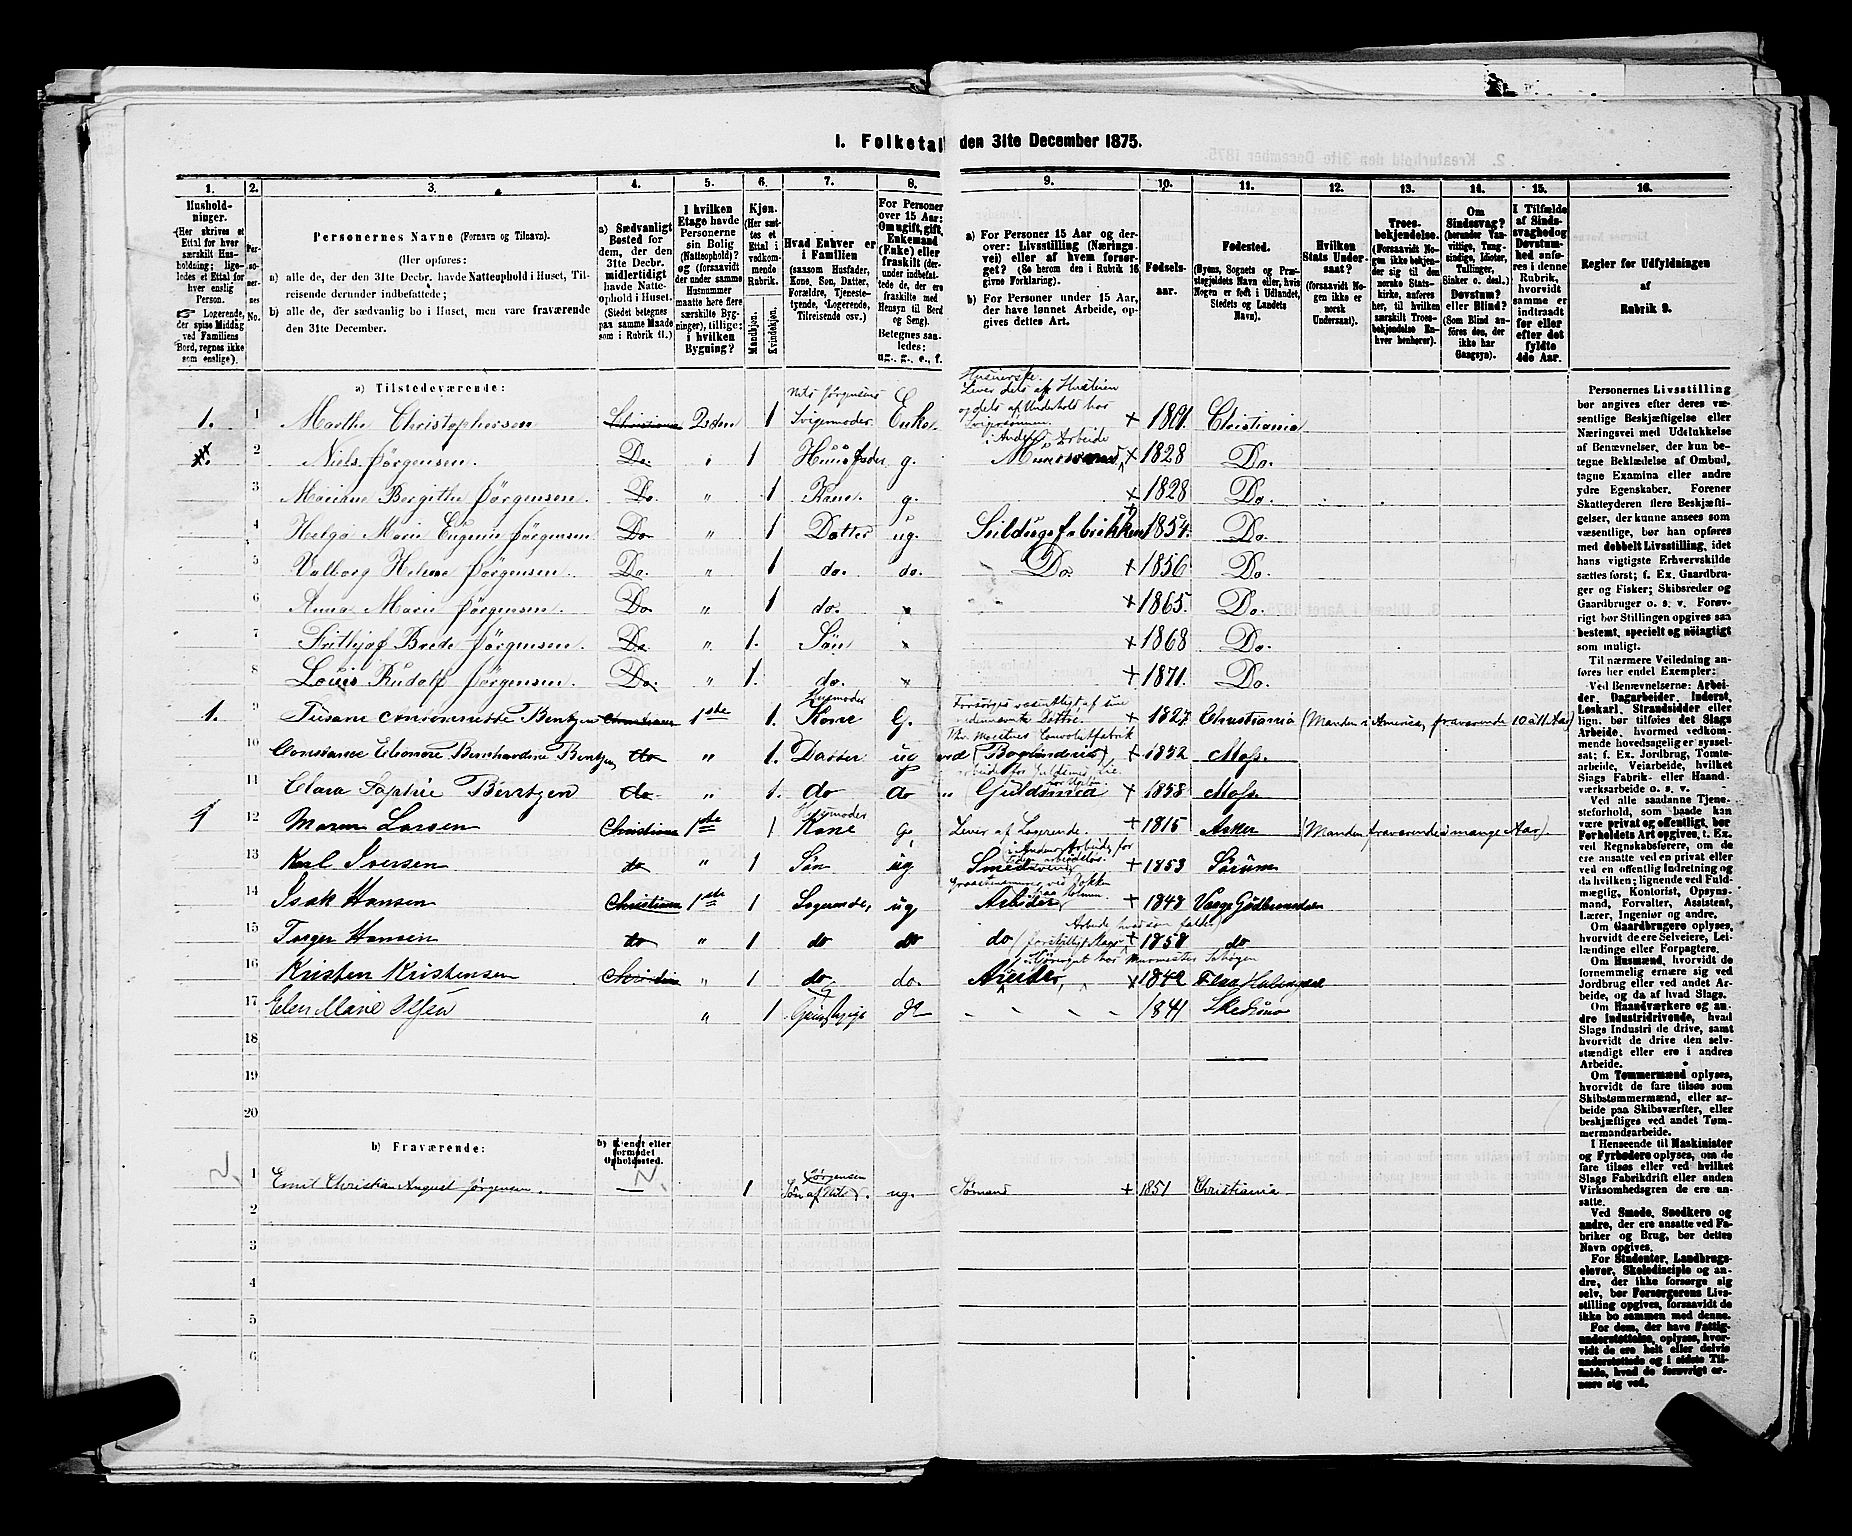 1. Folketal den 31te December 1875.
1. 2. 3. 4. 5. 6. 7. 8. 9. 10. 11. 12. 13. 14. 15. 16.
Husholdninger. (Her skrives et Ettal for hver særskilt Husholdning; ligeledes et Ettal for hver enslig Person.
Logerende, der spise Middag ved Familiens Bord, regnes ikke som enslige).
Personernes No.
Personernes Navne (Fornavn og Tilnavn).
(Her opføres:
a) alle de, der den 31te Decbr. havde Natteophold i Huset, Tilreisende derunder indbefattede;
b) alle de, der sædvanlig bo i Huset, men vare fraværende den 31te December.
a) Sædvanligt Bosted for dem, der den 31te Decbr. midlertidigt havde Natteophold i Huset. (Stedet betegnes paa samme Maade som i Rubrik 11.)
I hvilken Etage havde Personerne sin Bolig (Natteophold)? og (forsaavidt der under samme Husnummer maatte høre flere særskilte Bygninger), tillige: i hvilken Bygning?
Kjøn. (Her sættes et Ettal i vedkommende Rubrik.
Mandkjøn. Kvindekjøn.
Hvad Enhver er i Familien (saasom Husfader, Kone, Søn, Datter, Forældre, Tjenestetyende, Logerende, Tilreisende osv.)
For Personer over 15 Aar: Om ugift, gift, Enkemand (Enke) eller fraskilt (derunder indbefattede de, der ere fraskilte med Hensyn til Bord og Seng). Betegnes saaledes: ug., g., e., f.
a) For Personer 15 Aar og derover: Livsstilling (Næringsvei) eller af hvem forsørget? (Se herom den i Rubrik 16 givne Forklaring).
b) For Personer under 15 Aar, der have lønnet Arbeide, opgives dettes Art.
Fødselsaar.
Fødested. (Byens, Sognets og Præstegjeldets Navn, eller, hvis Nogen er født i Udlandet, Stedets og Landets Navn).
Hvilken Stats Undersaat? (forsaavidt Nogen ikke er norsk Undersaat).
Troesbekjendelse. (Forsaavidt Nogen ikke bekjender sig til den norske Statskirke, anføres her, til hvilken særskilt Troesbekjendelse Enhver henhører).
Om Sindssvag? (herunder Vanvittige, Tungsindige, Idioter, Tullinger, Sinker o. desl.) Døvstum? eller Blind? (Som Blind anføres den, der ikke har Gangsyn).
I Tilfælde af Sindssvaghed og Døvstumhed anføres i denne Rubrik, hvorvidt samme er indtraadt før eller efter det fyldte 4de Aar.
Regler for Udfyldningen af Rubrik 9.
a) Tilstedeværende:
1. 1 Marthe Christophersen Christiania 2den 1 Niels Jørgensens Svigermoder Enke + 1801 Christiania
2 Niels Jørgensen. Do. 1 Huusfader g. i Andres Arbeide + 1828 Do.
3 Mariane Bergithe Jørgensen Do " 1 Kone. g. + 1828 Do.
4 Helga Marie Eugenie Jørgensen Do " 1 Datter ug. 1854. Do.
5 Valborg Helene Jørgensen. Do. " 1 do. do. Do. + 1856 Do.
6 Anna Marie Jørgensen. Do " 1 do. " + 1865 Do.
7 Frithjof Brede Jørgensen. Do " 1. Søn " + 1868 Do.
8 Louis Rudolf Jørgensen. Do. " 1. do. " + 1871. Do.
1. 9 Antoinette Bentzen Christiania 1ste 1. Husmoder Kone G. + 1827 Christiania (Manden i America, fraværende 10 Aar)
10 Constance Eleonore Bernhardine Bentzen do " 1. Datter ug + 1852 Moss.
11 Clara Sophie Bentzen do. " 1. do do Guldsmed + 1858 Moss
1 12 Maren Larsen Christiania 1ste 1 Husmoder Kone G. Lever af Logerende. + 1815 Asker (Manden fraværende i mange Aar).
13 Karl Iversen do " 1 Søn ug Smedsvend + 1853 Sørum
14 Isak Hansen Christiania 1ste 1 Logerende, ug Arbeider + 1848 Vaage Gudbrandsdalen
15 Torger Hansen do " 1 do do do + 1858 do
16 Kristen Kristensen Christiania " 1 do, do. Arbeider + 1842 Flaa Hallingdal
17 Elen Marie Olsen " 1 do 1841 Skedsmo
18
19
20
b) Fraværende:
b) Kjendt eller formodet Opholdssted.
1 Emil Christian August Jørgensen. — 1 Søn af Niels Jørgensen. ug. Sømand + 1851 Christiania
2
3
4
5
6
Personernes Livsstilling bør angives efter deres væsentlige Beskjæftigelse eller Næringsvei med Udelukkelse af Benævnelser, der kun betegne Beklædelse af Ombud, tagne Examina eller andre ydre Egenskaber. Forener Skatteyderen flere Beskjæftigelser, der kunne ansees som væsentlige, bør han opføres med dobbelt Livsstilling, idet hans vigtigste Erhvervskilde sættes først; f. Ex. Gaardbruger og Fisker; Skibsreder og Gaardbruger o. s. v. Forøvrigt bør Stillingen opgives saa bestemt, specielt og nøiagtigt som muligt.
Til nærmere Veiledning anføres her endel Exempler:
Ved Benævnelserne: Arbeider, Dagarbeider, Inderst, Løskarl, Strandsidder eller lign. bør tilføies det Slags Arbeide, hvormed vedkommende hovedsagelig er sysselsat; f. Ex. Jordbrug, Tomtearbeide, Veiarbeide, hvilket Slags Fabrik- eller Haandværksarbeide o. s. v.
Ved alle saadanne Tjenesteforhold, som baade kan være privat og offentlig, bør Forholdets Art opgives, t. Ex. ved Regnskabsførere, om de ere ansatte ved en privat eller en offentlig Indretning og da hvilken; lignende ved Fuldmægtig, Kontorist, Opsynsmand, Forvalter, Assistent, Lærer, Ingeniør og andre.
Om Gaardbrugere oplyses, hvorvidt de ere Selveiere, Leilændinge eller Forpagtere.
Om Husmænd, hvorvidt de fornemmelig ernære sig ved Jordbrug eller ved andet Arbeide, og da af hvad Slags.
Om Haandværkere og andre Industridrivende, hvad Slags Industri de drive, samt hvorvidt de drive den selvstændigt eller ere i andres Arbeide.
Om Tømmermænd oplyses, hvorvidt de fare tilsøs som Skibstømmermænd, eller arbeide paa Skibsværfter, eller beskjæftiges ved andet Tømmermandsarbeide.
I Henseende til Maskinister og Fyrbødere oplyses, om de fare tilsøs eller ved hvilket Slags Fabrikdrift eller anden Virksomhedsgren de ere ansatte.
Ved Smede, Snedkere og andre, der ere ansatte ved Fabriker og Brug, bør dettes Navn opgives.
For Studenter, Landbrugselever, Skoledisciple og andre, der ikke forsørge sig selv, bør Forsørgerens Livsstilling opgives, forsaavidt de ikke bo sammen med denne.
For dem, der have Fattigunderstøttelse, oplyses, hvorvidt de ere helt eller delvis understøttede og i sidste Tilfælde, hvad de forøvrigt ernære sig ved.